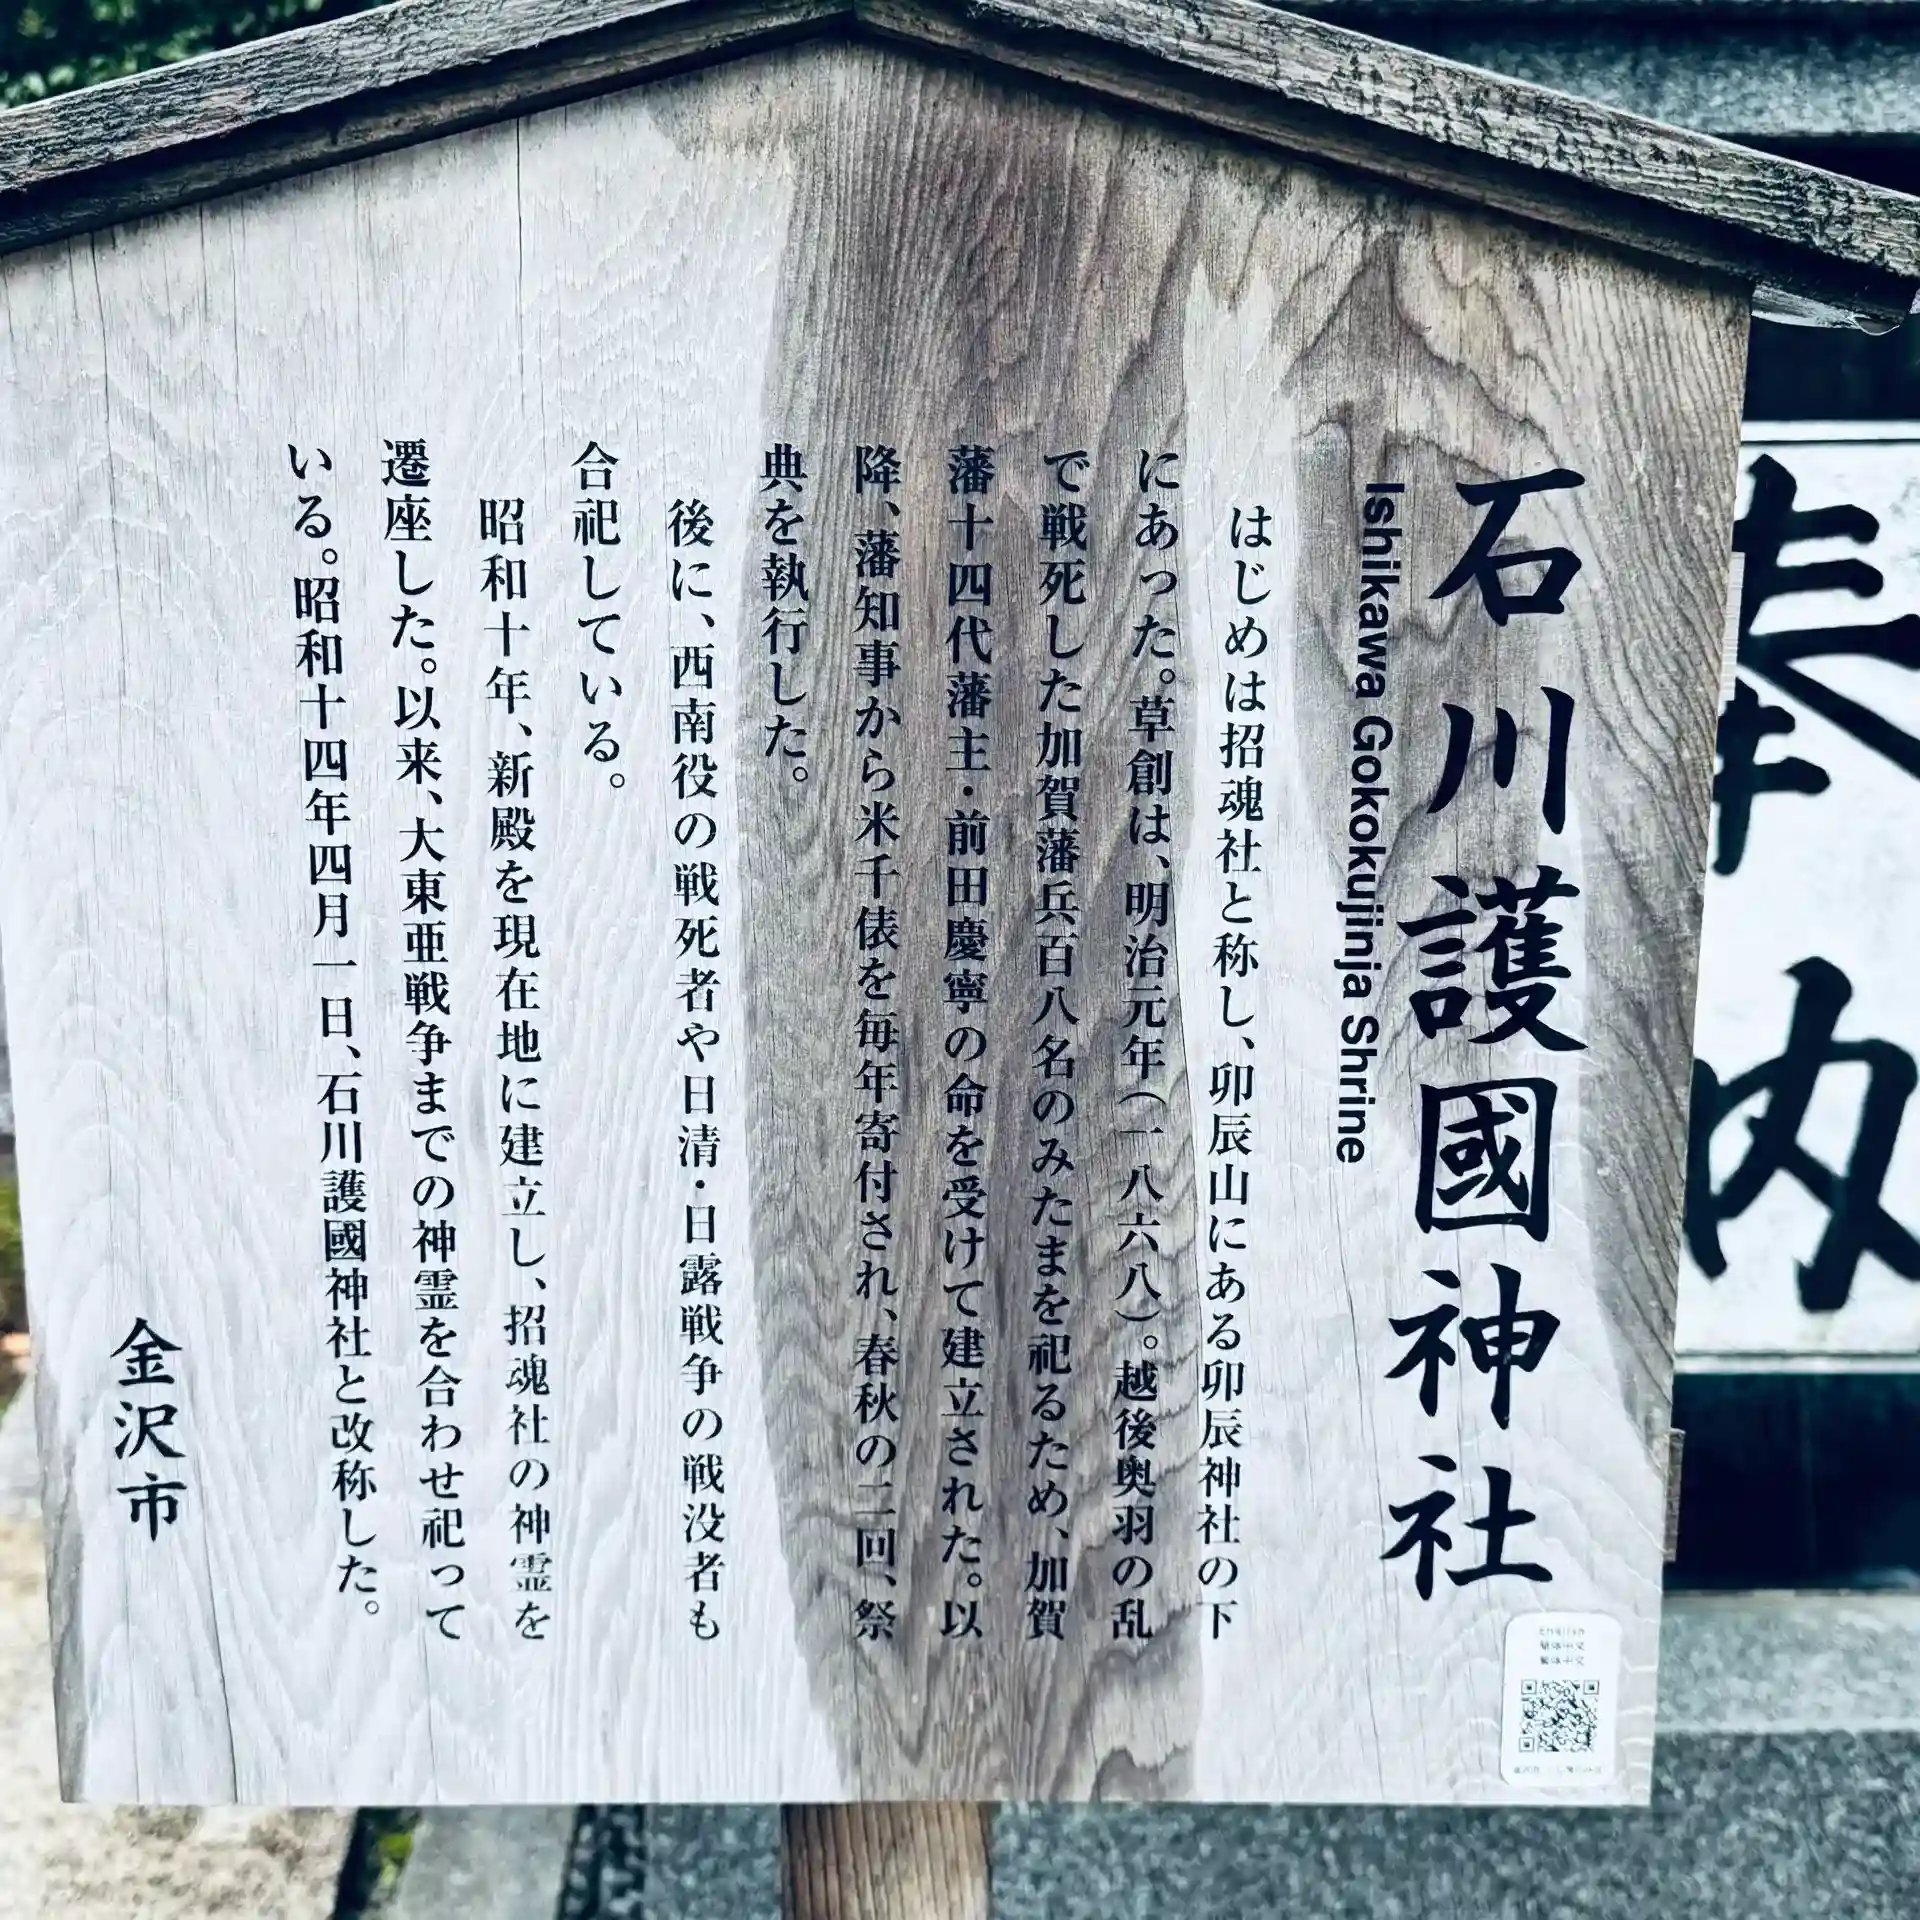 石川護國神社
Ishikawa Gokokujinja Shrine
はじめは招魂社と称し、卯辰山にある卯辰神社の下
にあった。草創は、明治元年(一八六八)。越後奥羽の乱
で戦死した加賀藩兵百八名のみたまを祀るため、加賀
藩十四代藩主・前田慶寧の命を受けて建立された。以
降、藩知事から米千俵を毎年寄付され、春秋の二回、祭
典を執行した。
後に、西南役の戦死者や日清・日露戦争の戦没者も
合祀している。
昭和十年、新殿を現在地に建立し、招魂社の神霊を
遷座した。以来、大東亜戦争までの神霊を合わせ祀って
いる。昭和十四年四月一日、石川護國神社と改称した。
金沢市
English
简体中文
繁体中文
奉納